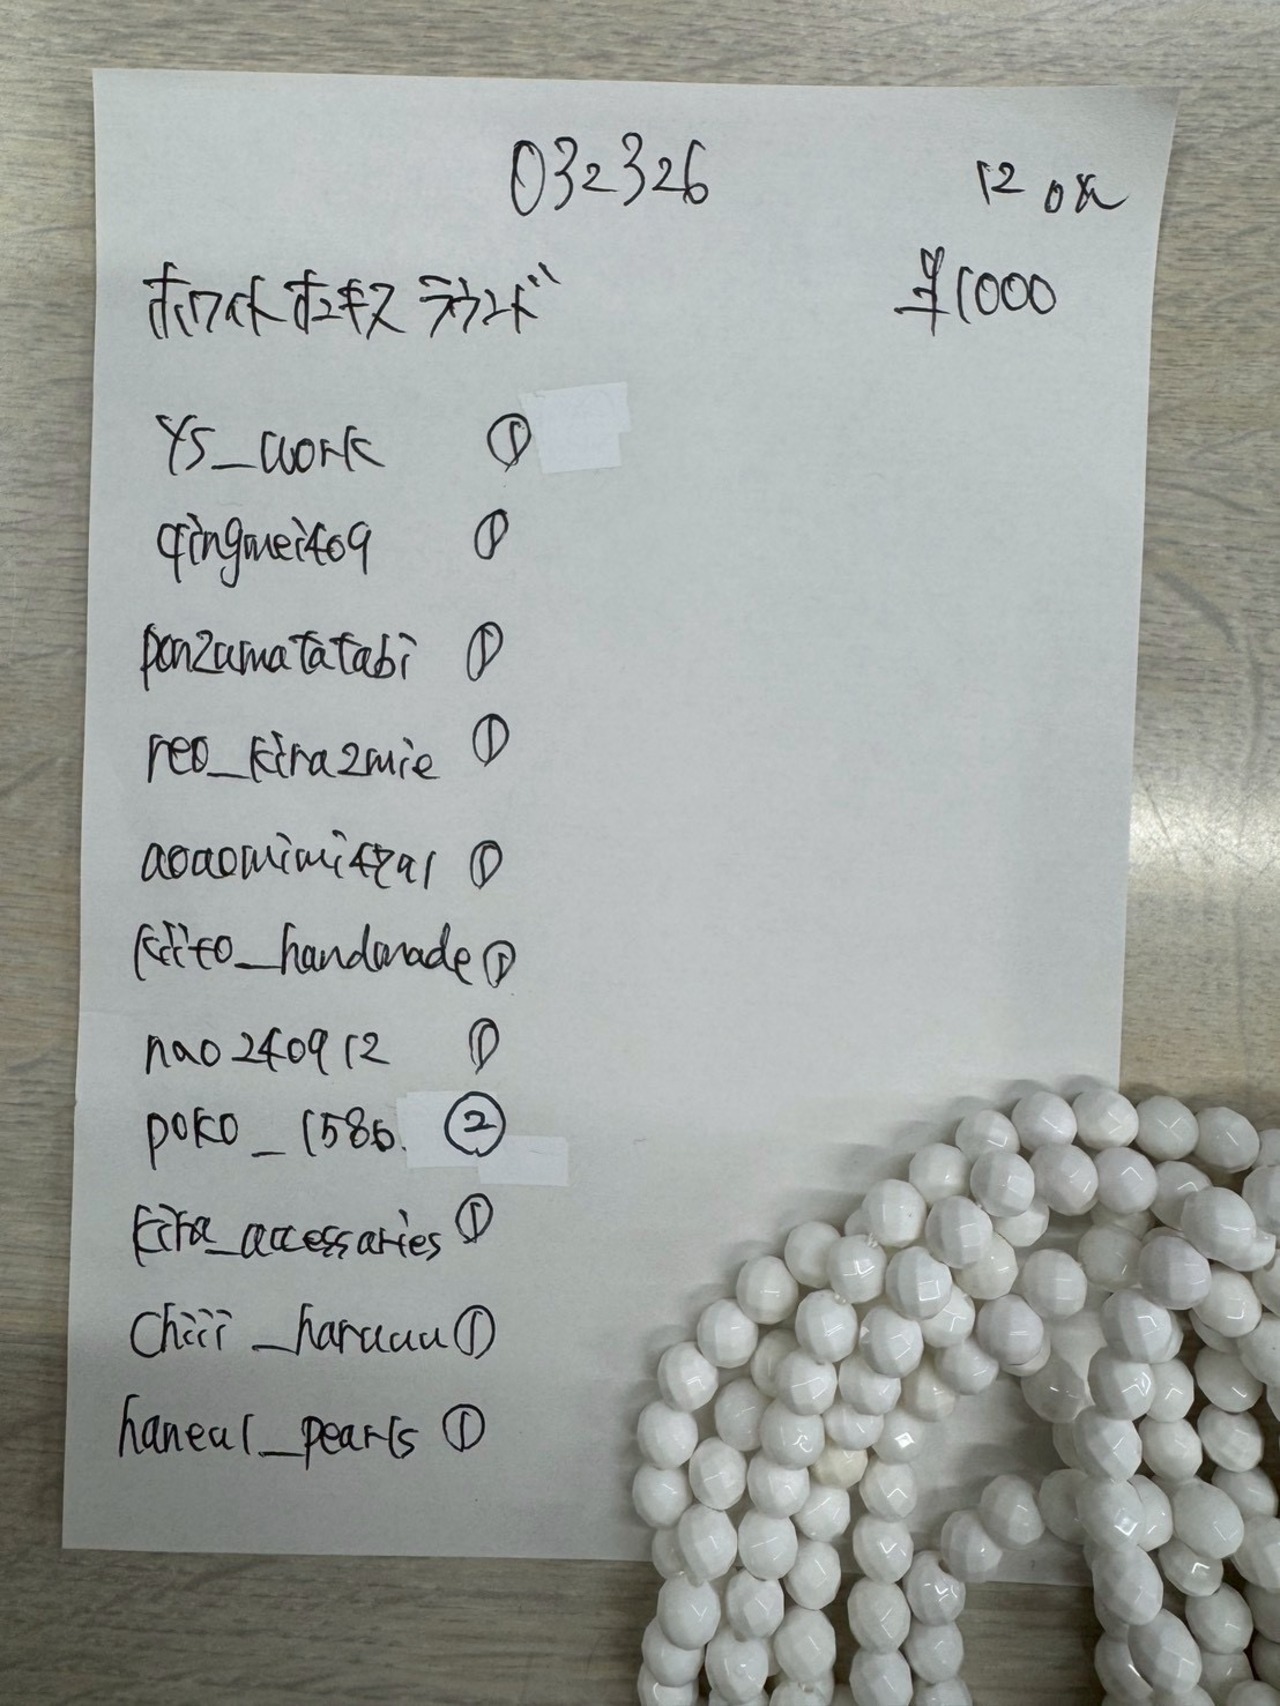 032326
12 on
ホワイトオニキス ラウンド
¥1000
YS_work ①
qingmei409 ①
ponzamatatabi ①
reo_kira2mie ①
①
kiito_handmade ①
nao240912 ①
poko_1586. ②
kira_accessaries ①
chiii_haruuu ①
haneul_pearls ①